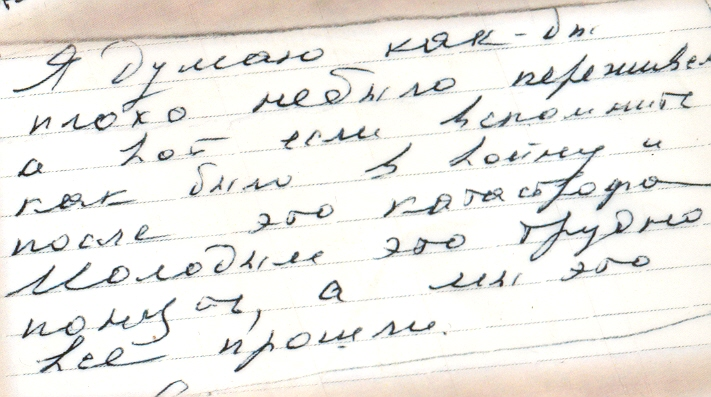 Я думаю как-бы
плохо небыло переживем
а вот если вспомнить
как было в войну и
после это катастрофа
Молодым это трудно
понять, а мы это
всё прошли.